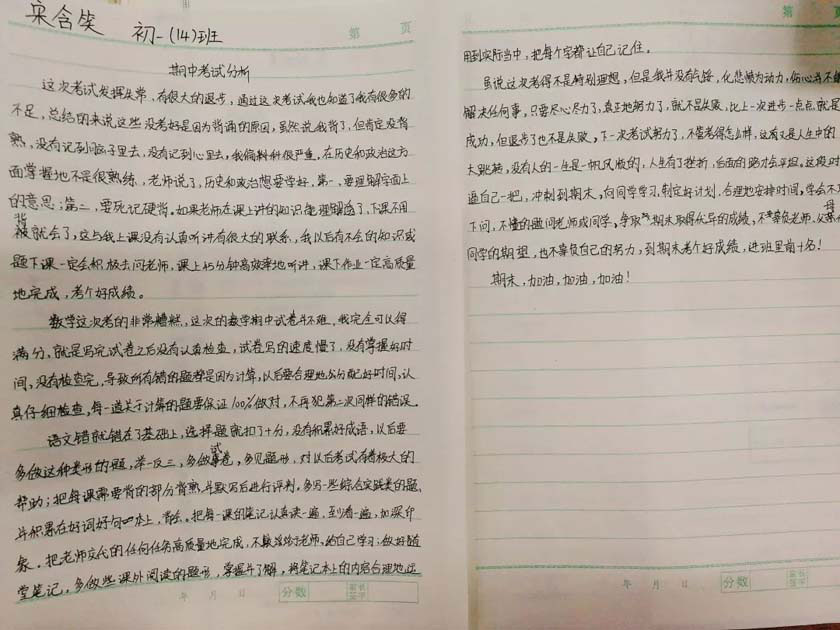 宋含笑 初一(14)班
第 页
期中考试分析
这次考试发挥失常,有很大的退步,通过这次考试我也知道了我有很多的
不足,总结的来说这些没考好是因为背诵的原因,虽然说我背了,但肯定没背
熟,没有记到脑子里去,没有记到心里去,我偏科科很严重。在历史和政治这方
面掌握地不是很熟练,老师说了,历史和政治想要学好,第一,要理解字面上
的意思;第二,要死记硬背。如果老师在课上讲的知识能理解透了,下课不用
背就会了,这与我上课没有认真听讲有很大的联系,我以后有不会的知识或
题下课一定会积极去问老师,课上45分钟高效率地听讲,课下作业一定高质量
地完成,考个好成绩。
数学这次考的非常糟糕,这次的数学期中试卷并不难,我完全可以得
满分,就是写完试卷之后没有认真检查,试卷写的速度慢了,没有掌握好时
间,没有检查完,导致所有错的题都是因为计算,以后要合理地分配好时间,认
真仔细检查,每一道关于计算的题要保证100%做对,不再犯第二次同样的错误。
语文错就错在了基础上,选择题就扣了十分,没有积累好成语,以后要
多做这种类形的题,举一反三,多做试卷,多见题形,对以后考试有着极大的
帮助;把每课需要背的部分背熟并默写后进行评判。多写一些综合实践类的题,
并积累在好词好句本上,背会。把每一课的笔记认真读一遍,到看一遍,加深印
象。把老师交代的任何任务高质量地完成,不敷衍给老师,给自己学习;做好随
堂笔记,多做些课外阅读的题形,掌握并了解,将笔记本上的内容合理地运
年 月 日 分数 家长签字
第 页
用到实际当中,把每个字都让自己记住。
虽说这次考得不是特别理想,但是我并没有气馁,化悲愤为动力,伤心并不能
解决任何事,只要尽心尽力了,真正地努力了,就不是失败,比上一次进步一点点就是
成功,但退步了也不是失败,下一次考试努力了,不管考得怎么样,这有又是人生中的
大跳转,没有人的一生是一帆风顺的,人生有了挫折,后面的路才会平坦。这段时
逼自己一把,冲刺到期末,向同学学习,制定好计划,合理地安排时间,学会不耻
下问,不懂的题问老师或同学,争取期末取得优异的成绩,不辜负老师、父母
同学的期望,也不辜负自己的努力,到期末考个好成绩,进班里前十名!
期末,加油,加油,加油!
年 月 日 分数 家长签字